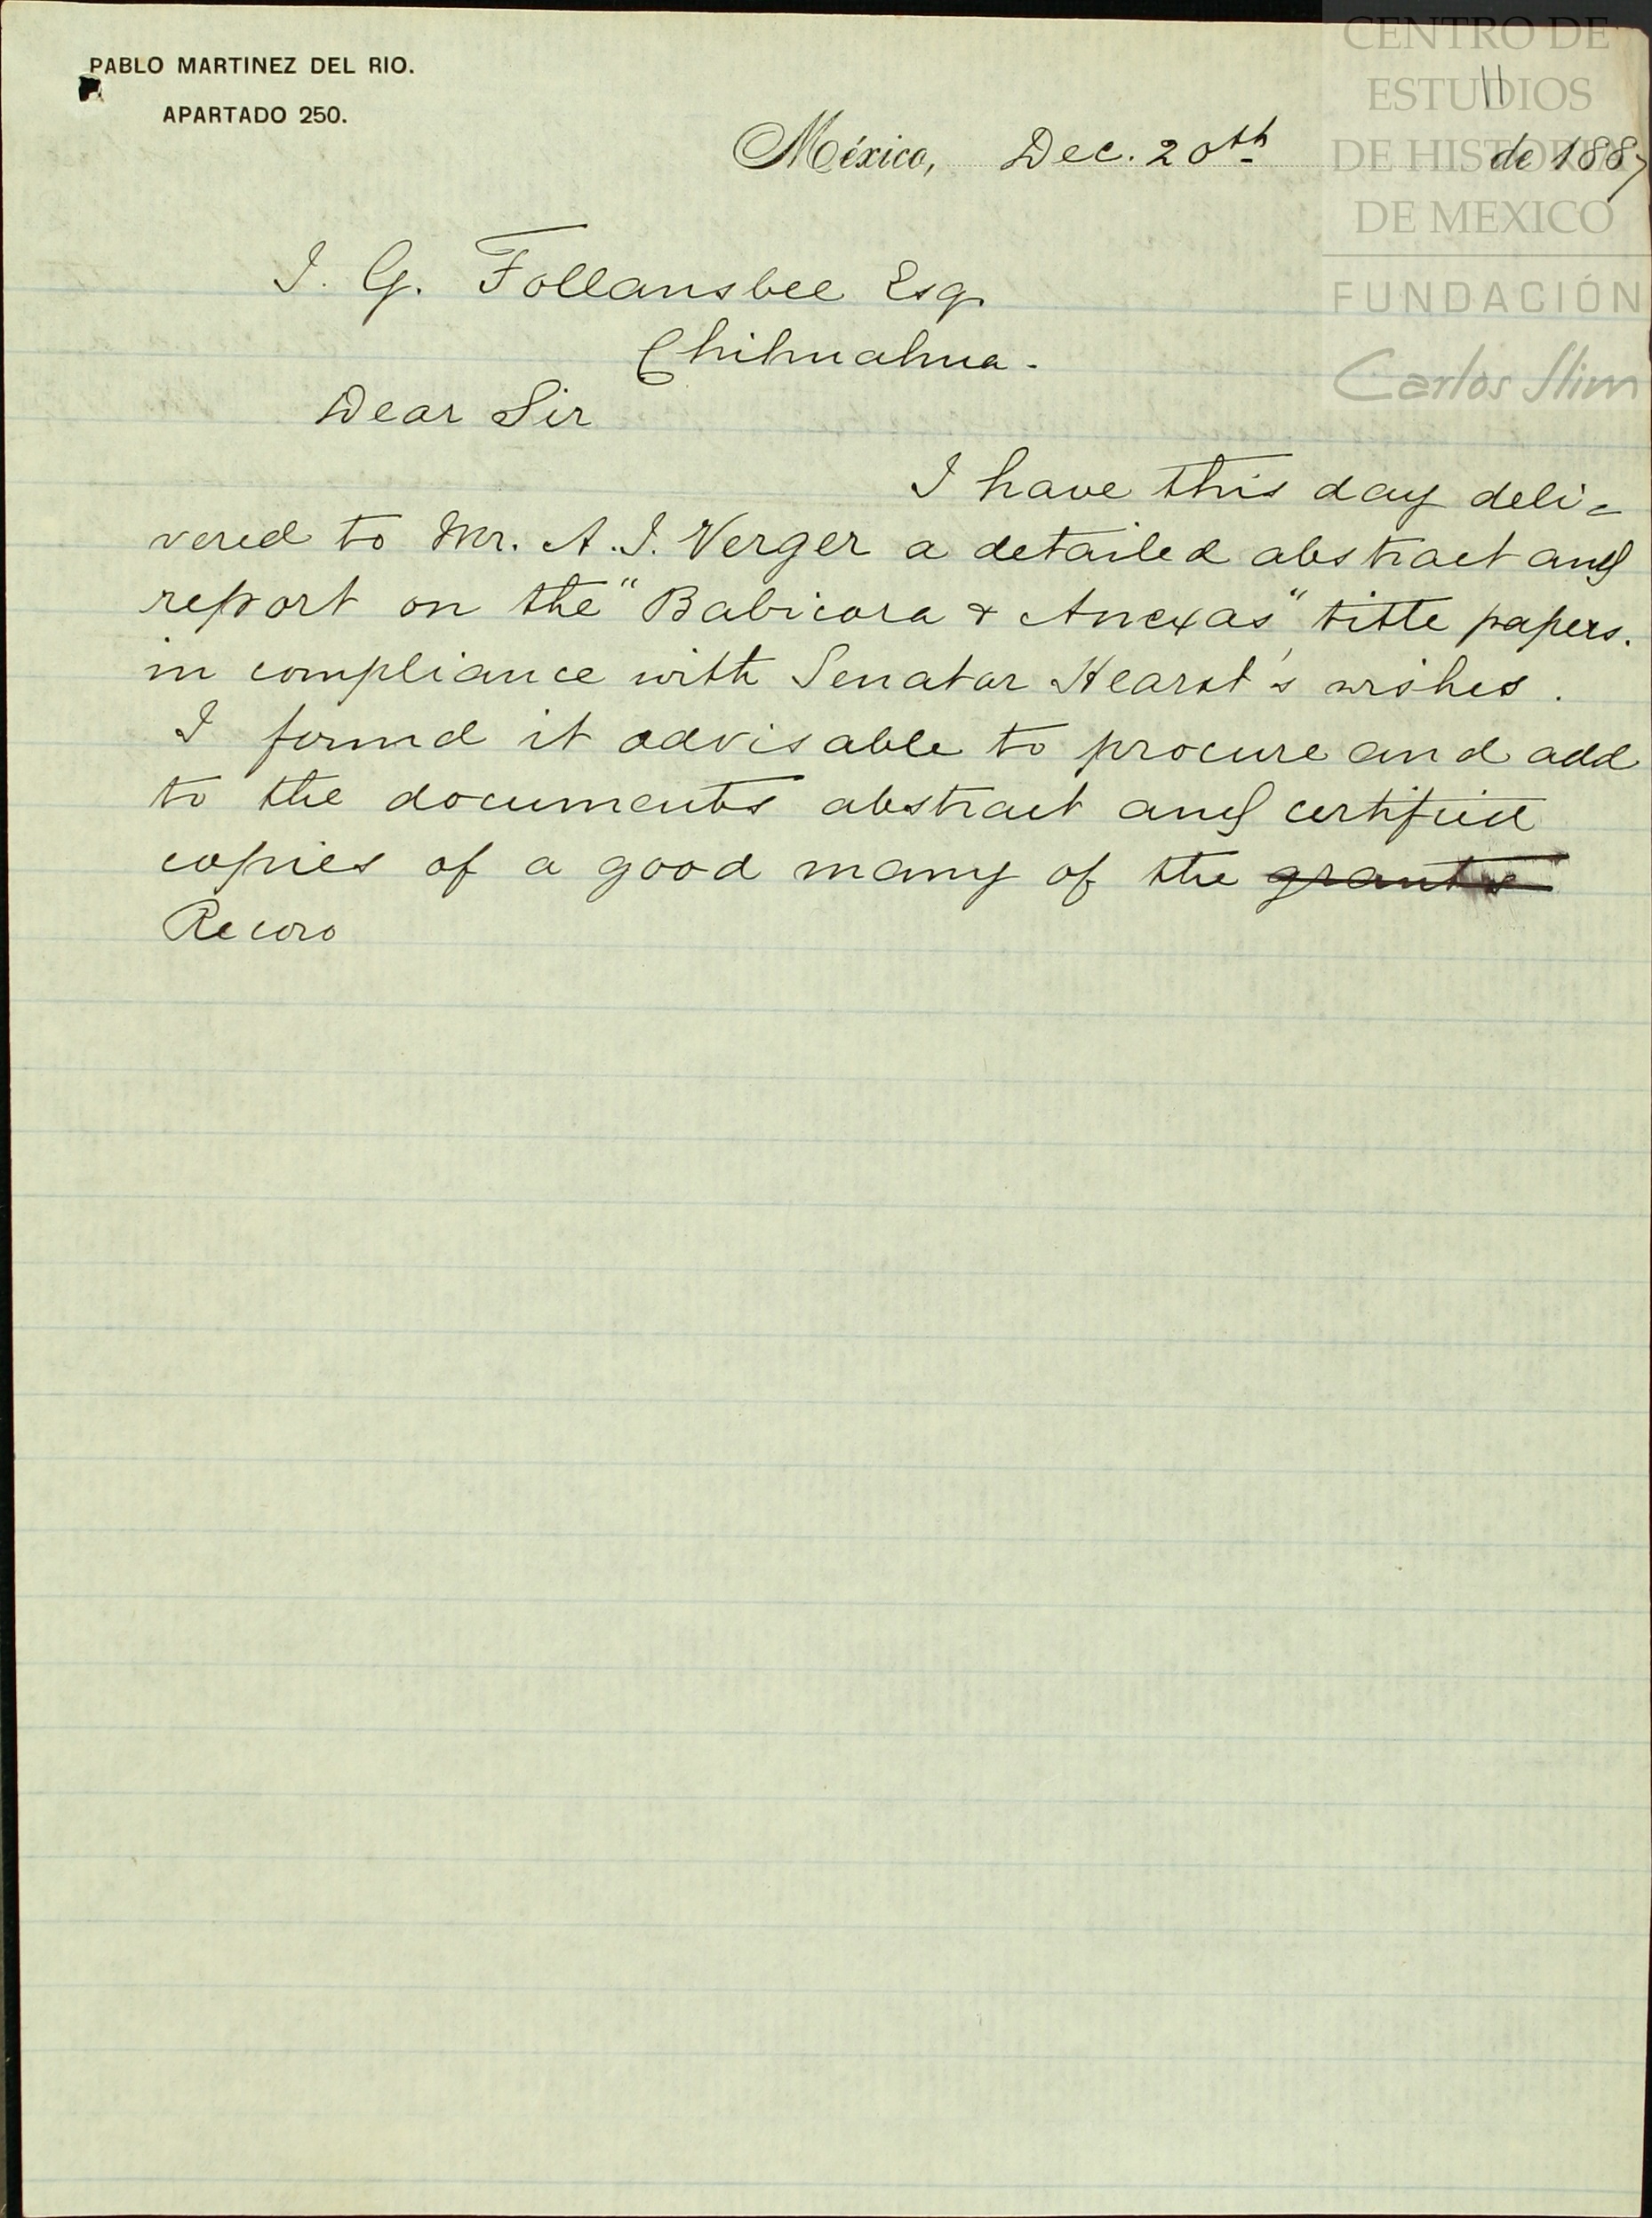 PABLO MARTINEZ DEL RIO.
APARTADO 250.
CENTRO DE
ESTUDIOS
DE HISTORIA
DE MEXICO
FUNDACIÓN
Carlos Slim
11
México, Dec. 20th de 1887
J. G. Follansbee Esq.
Chihuahua.
Dear Sir
I have this day deli-
vered to Mr. A. J. Verger a detailed abstract and
report on the "Babicora & Anexas" title papers.
in compliance with Senator Hearst's wishes.
I found it advisable to procure and add
to the documents abstract and certified
copies of a good many of the grants
Recoro